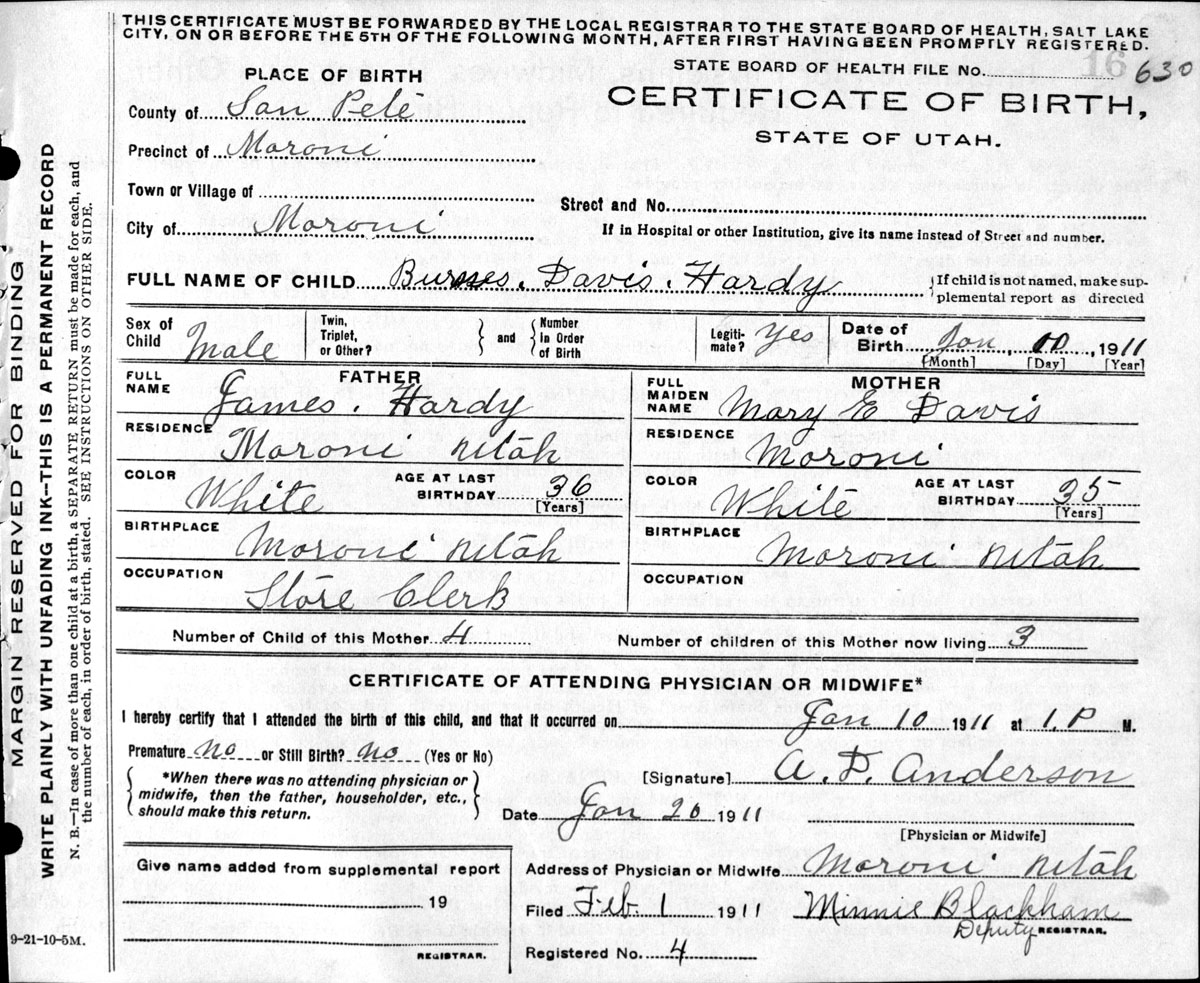 THIS CERTIFICATE MUST BE FORWARDED BY THE LOCAL REGISTRAR TO THE STATE BOARD OF HEALTH, SALT LAKE
CITY, ON OR BEFORE THE 5TH OF THE FOLLOWING MONTH, AFTER FIRST HAVING BEEN PROMPTLY REGISTERED.
STATE BOARD OF HEALTH FILE No. 16 630
CERTIFICATE OF BIRTH,
STATE OF UTAH.
PLACE OF BIRTH
County of San Pete
Precinct of Moroni
Town or Village of
Street and No.
City of Moroni
If in Hospital or other Institution, give its name instead of Street and number.
FULL NAME OF CHILD Davis. Hardy
If child is not named, make sup-
plemental report as directed
Sex of Child Male
Twin, Triplet, or Other?
and
Number in Order of Birth
Legiti-mate? yes
Date of Birth Jan, 10, 1911
[Month] [Day] [Year]
FATHER
FULL NAME James. Hardy
RESIDENCE Moroni Utah
COLOR White AGE AT LAST BIRTHDAY 36 [Years]
BIRTHPLACE Moroni Utah
OCCUPATION Store Clerk
MOTHER
FULL MAIDEN NAME Mary E Davis
RESIDENCE Moroni
COLOR White AGE AT LAST BIRTHDAY 35 [Years]
BIRTHPLACE Moroni Utah
OCCUPATION
Number of Child of this Mother 4 Number of children of this Mother now living 3
CERTIFICATE OF ATTENDING PHYSICIAN OR MIDWIFE*
I hereby certify that I attended the birth of this child, and that it occurred on Jan 10 1911 at 1, P M.
Premature no or Still Birth? no (Yes or No)
*When there was no attending physician or
midwife, then the father, householder, etc.,
should make this return.
[Signature] A. P. Anderson
Date Jan 20 1911
[Physician or Midwife]
Give name added from supplemental report
19
REGISTRAR.
Address of Physician or Midwife Moroni Utah
Filed Feb. 1 1911 Minnie Blackham
Deputy REGISTRAR.
Registered No. 4
MARGIN RESERVED FOR BINDING
WRITE PLAINLY WITH UNFADING INK—THIS IS A PERMANENT RECORD
N. B.—In case of more than one child at a birth, a SEPARATE RETURN must be made for each, and
the number of each, in order of birth, stated. SEE INSTRUCTIONS ON OTHER SIDE.
9-21-10-5M.